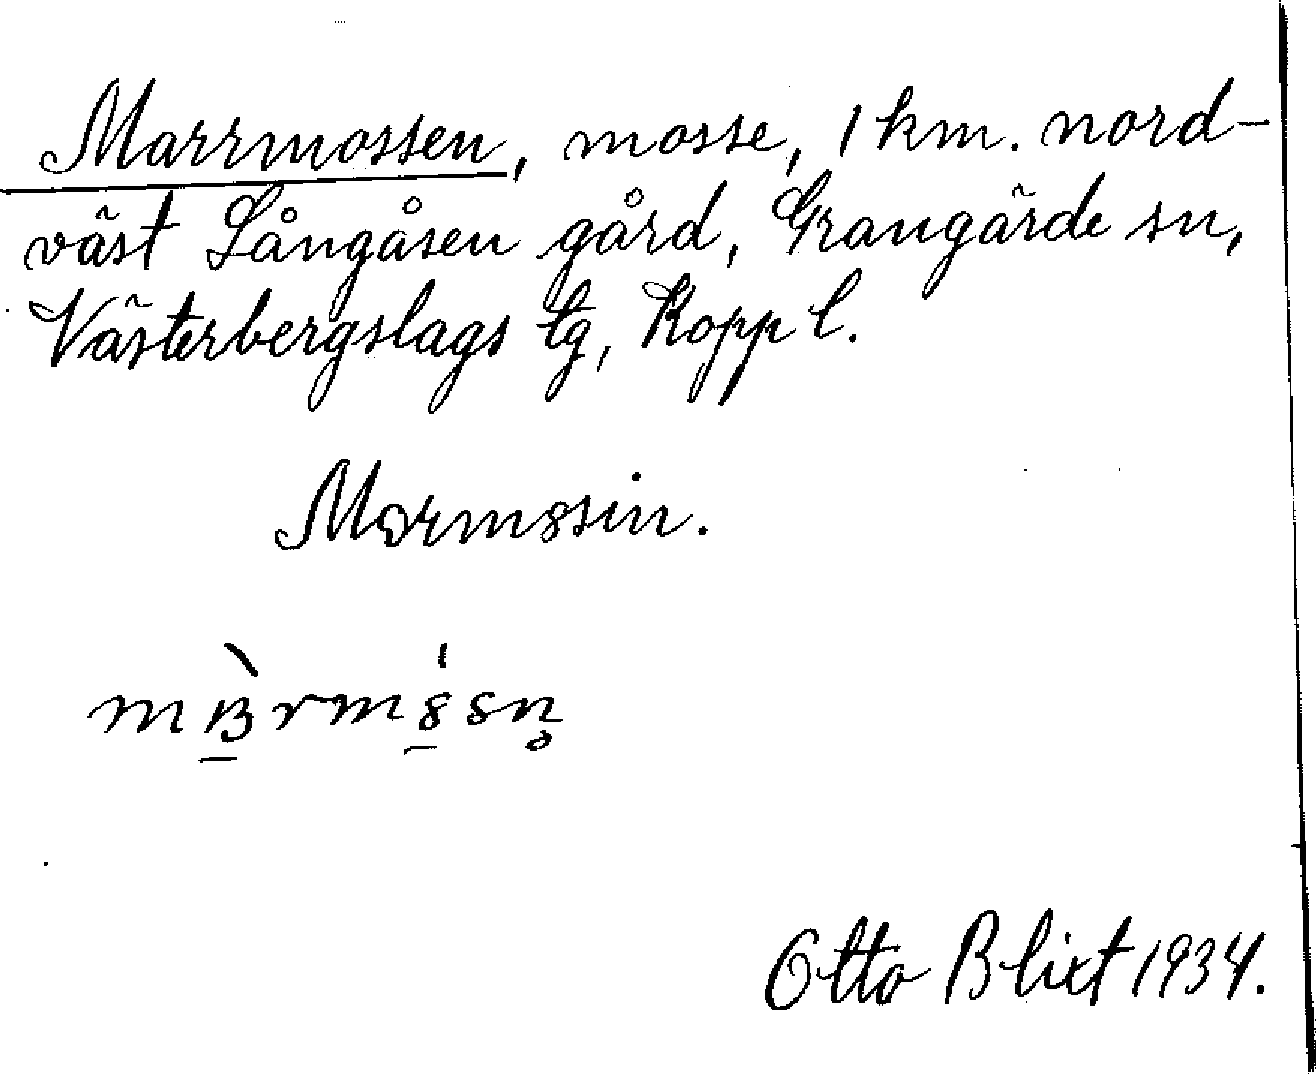 Marrmossen, mosse, 1 km. nord-
väst Långåsen gård, Grangärde sn,
Västerbergslags tg, Kopp l.
Marmssin.
Otto Blixt 1934.